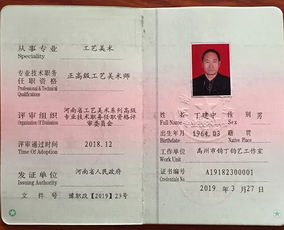 从事专业 工艺美术
Speciality
专业技术职务
任职资格 正高级工艺美术师
Professional & Technical
Qualifications
评审组织 河南省工艺美术系列高级
专业技术职务任职资格评
审委员会
Organization of Evaluation
评审通过时间 2018.12
Time of Adoption
发证单位 河南省人民政府
Issuing Authority
文件号 豫职政【2019】23号
姓名 丁建中 性别 男
Full Name Sex
出生年月 1964.03 籍贯
Birthdate Native Place
工作单位 禹州市钧丁钧艺工作室
Work Unit
证书编号 A19182300001
Credentials No
2019 年 3 月 27 日